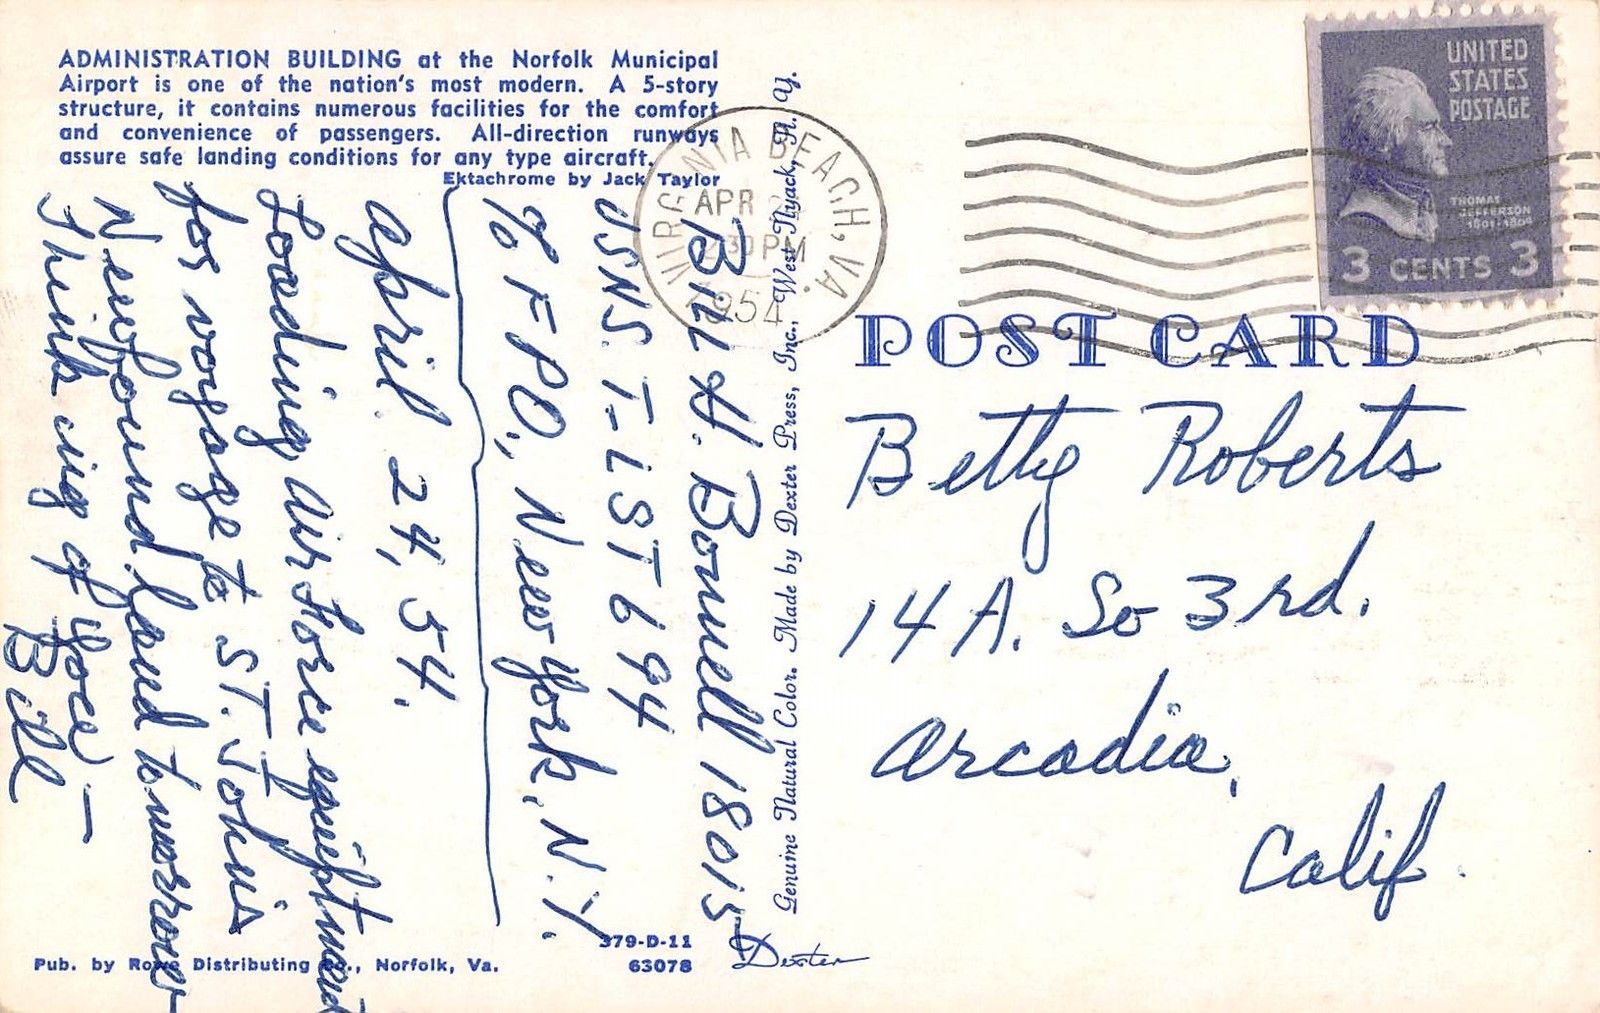 ADMINISTRATION BUILDING at the Norfolk Municipal
Airport is one of the nation's most modern. A 5-story
structure, it contains numerous facilities for the comfort
and convenience of passengers. All-direction runways
assure safe landing conditions for any type aircraft.
Ektachrome by Jack Taylor
Bill H. Bonnell 18015
USNS. T-LST 694
% FPO., New York, N.Y.
April 24, 54.
Loading Air Force equiptment
for voyage to ST. John's
Newfoundland tomorrow
Thinking of you —
Bill
Pub. by Rowe Distributing Co., Norfolk, Va.
379-D-11
63078
Genuine Natural Color. Made by Dexter Press, Inc., West Nyack, N. Y.
Dexter
VIRGINIA BEACH, VA.
APR
30 PM
1954
UNITED
STATES
POSTAGE
THOMAS
JEFFERSON
1801-1809
3 CENTS 3
POST CARD
Betty Roberts
14 A. So 3rd.
Arcadia,
Calif.